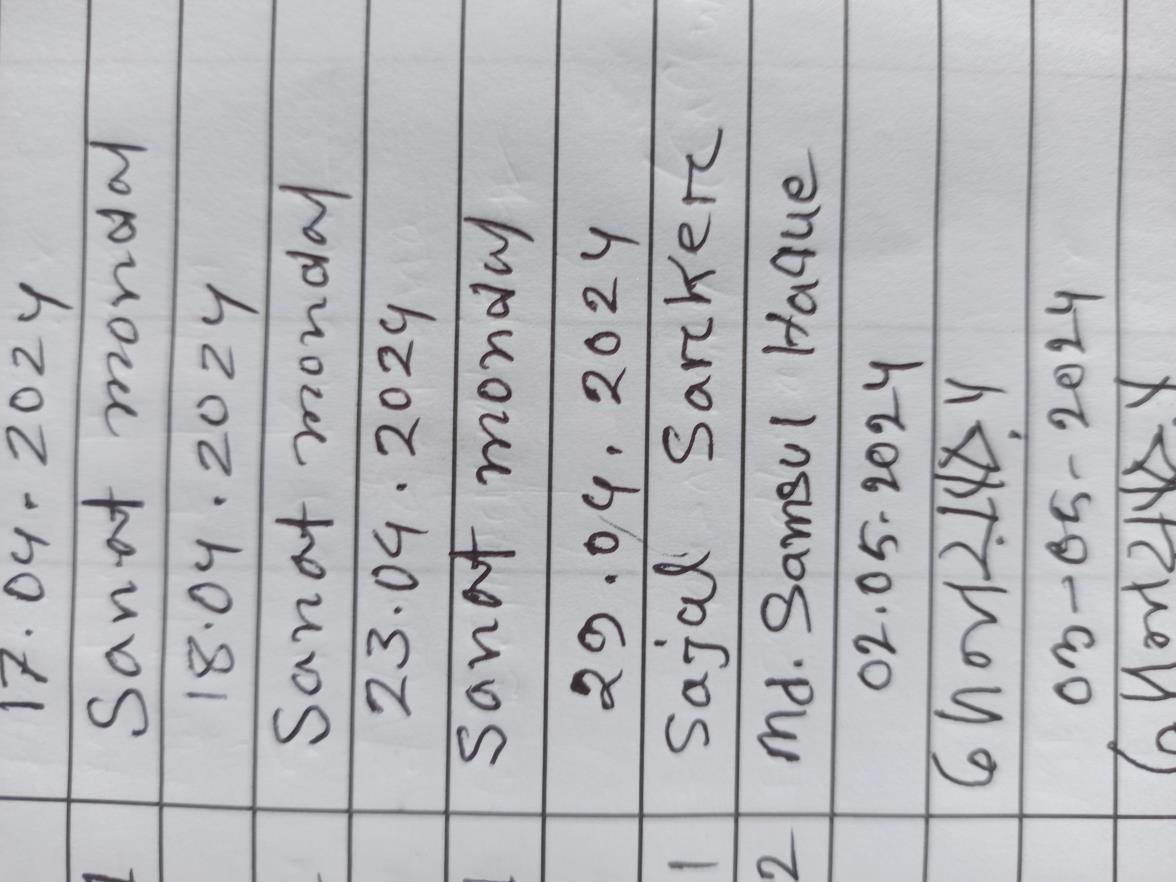 17.04.2024
Sanat mondal
18.04.2024
Sanat mondal
23.04.2024
Sanat mondal
29.04.2024
1 Sajal Sarker
2 Md. Samsul Haque
02.05.2024
03-05-2024